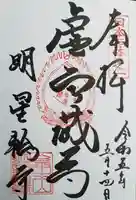 奉拝
令和五年
五月十四日
虚空蔵尊
明星輪寺